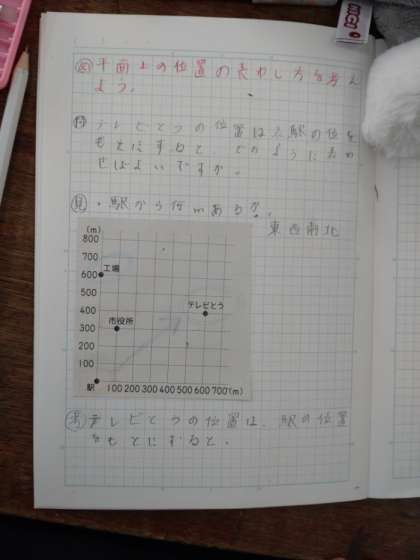 め 平面上の位置の表わし方を考え
よう。
問 テレビとうの位置は、駅の位を
もとにすると、どのように表わ
せばよいですか。
見 ・駅から何mある?。
東西南北
(m)
800
700
600 工場
500
400 テレビとう
300 市役所
200
100
駅 100 200 300 400 500 600 700 (m)
考 テレビとうの位置は、駅の位置
をもとにすると、